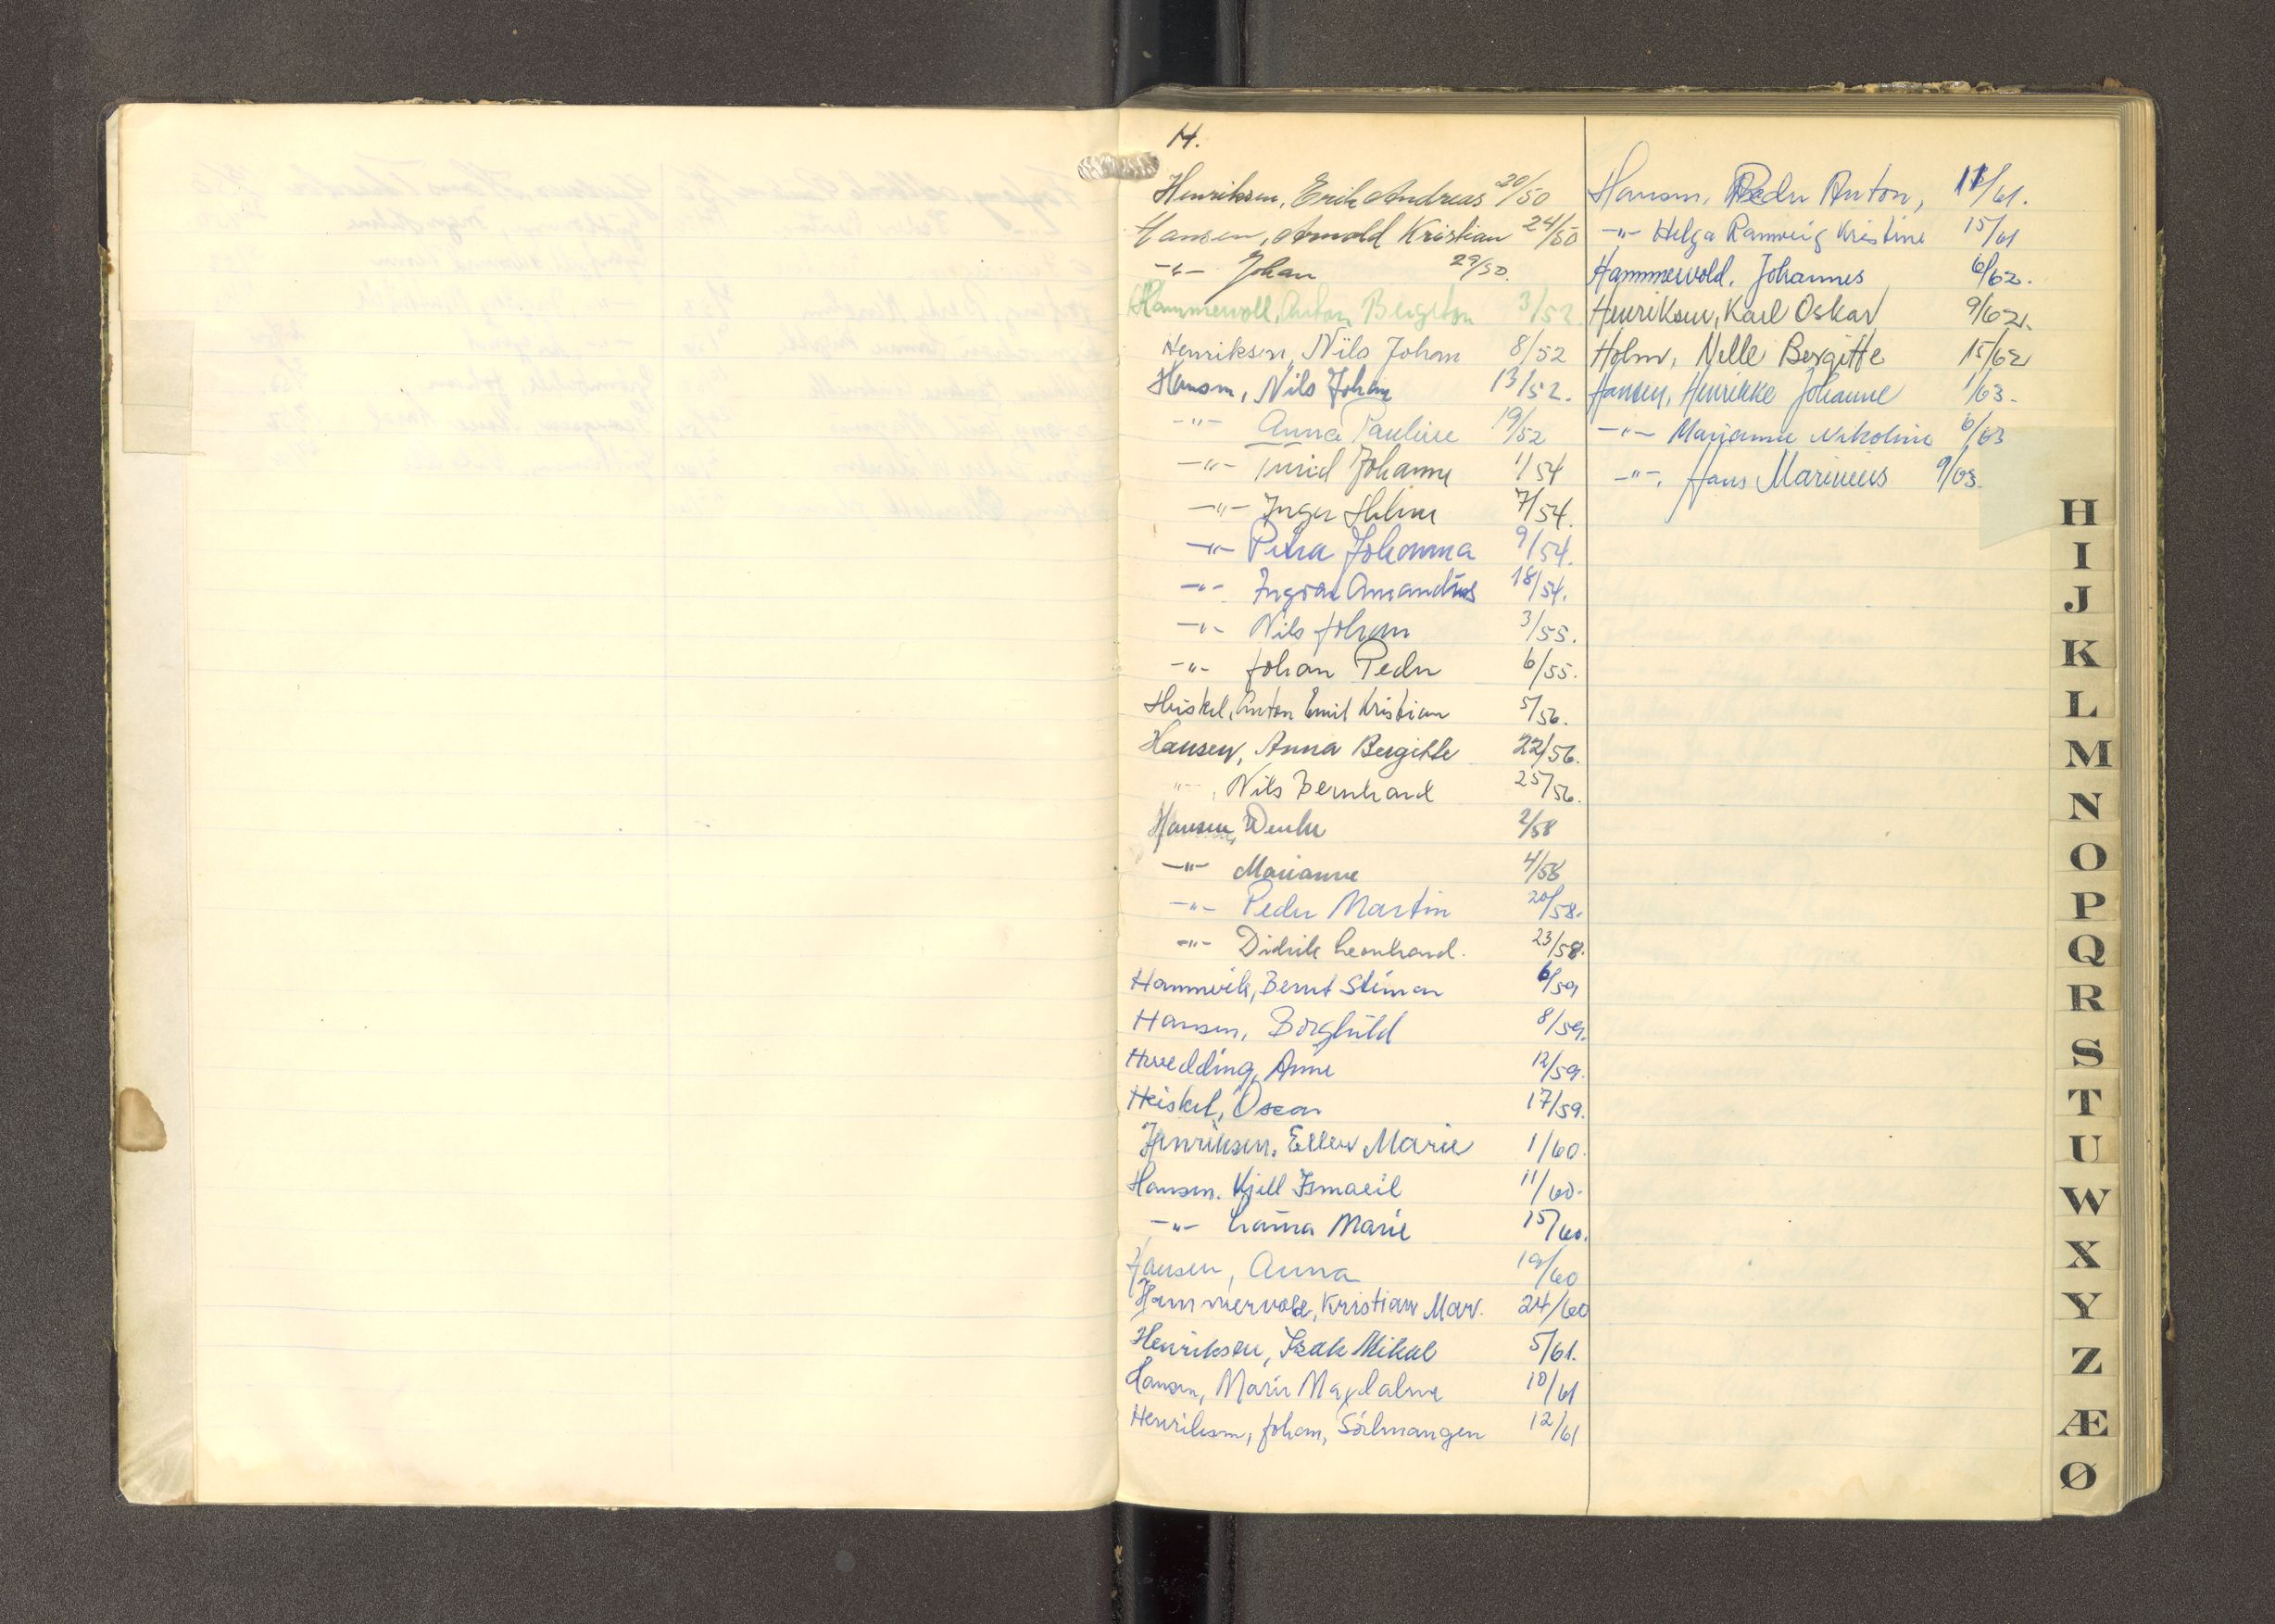 H.
Henriksen, Erik Andreas 20/50
Hansen, Arnold Kristian 24/50
-"- Johan 29/50.
Hammervoll, Anton Bergiton 3/52.
Henriksen, Nils Johan 8/52
Hansen, Nils Johan 13/52.
-"- Anna Pauline 19/52
-"- Turid Johanne 1/54
-"- Inger Helene 7/54.
-"- Petra Johanna 9/54.
-"- Ingvar Amandus 18/54.
-"- Nils Johan 3/55.
-"- Johan Peder 6/55.
Heiskel, Anton Emil Kristian 5/56.
Hansen, Anna Bergitte 22/56.
-"-, Nils Bernhard 25/56.
Hansen, Wenke 2/58
-"- Marianne 4/58
-"- Peder Martin 20/58.
-"- Didrik Leonhard. 23/58.
Hammvik, Bernt Steinar 6/59
Hansen, Borghild 8/59.
Hvedding, Anne 12/59.
Heiskel, Oscar 17/59.
Henriksen, Ellen Marie 1/60.
Hansen. Kjell Ismaeil 11/60.
-"- Laura Marie 15/60.
Hansen, Anna 19/60
Hammervold, Kristian Mar. 24/60
Henriksen, Isak Mikal 5/61.
Hansen, Marie Magdalene 10/61
Henriksen, Johan, Sörlmangen 12/61
Hansen, Peder Anton, 11/61.
-"- Helga Rannveig Kristine 15/61
Hammervold, Johannes 6/62.
Henriksen, Karl Oskar 9/62.
Holm, Nelle Bergitte 15/62
Hansen, Henrikke Johanne 1/63.
-"- Marianne Nikoline 6/63
-"-, Hans Marinius 9/63.
H
I
J
K
L
M
N
O
P
Q
R
S
T
U
W
X
Y
Z
Æ
Ø